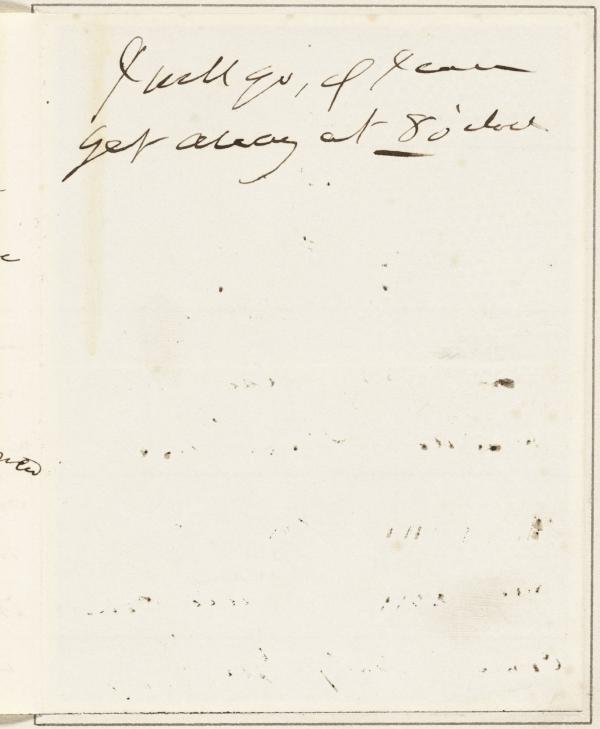 I will go, if I can
get away at 8 o'clock